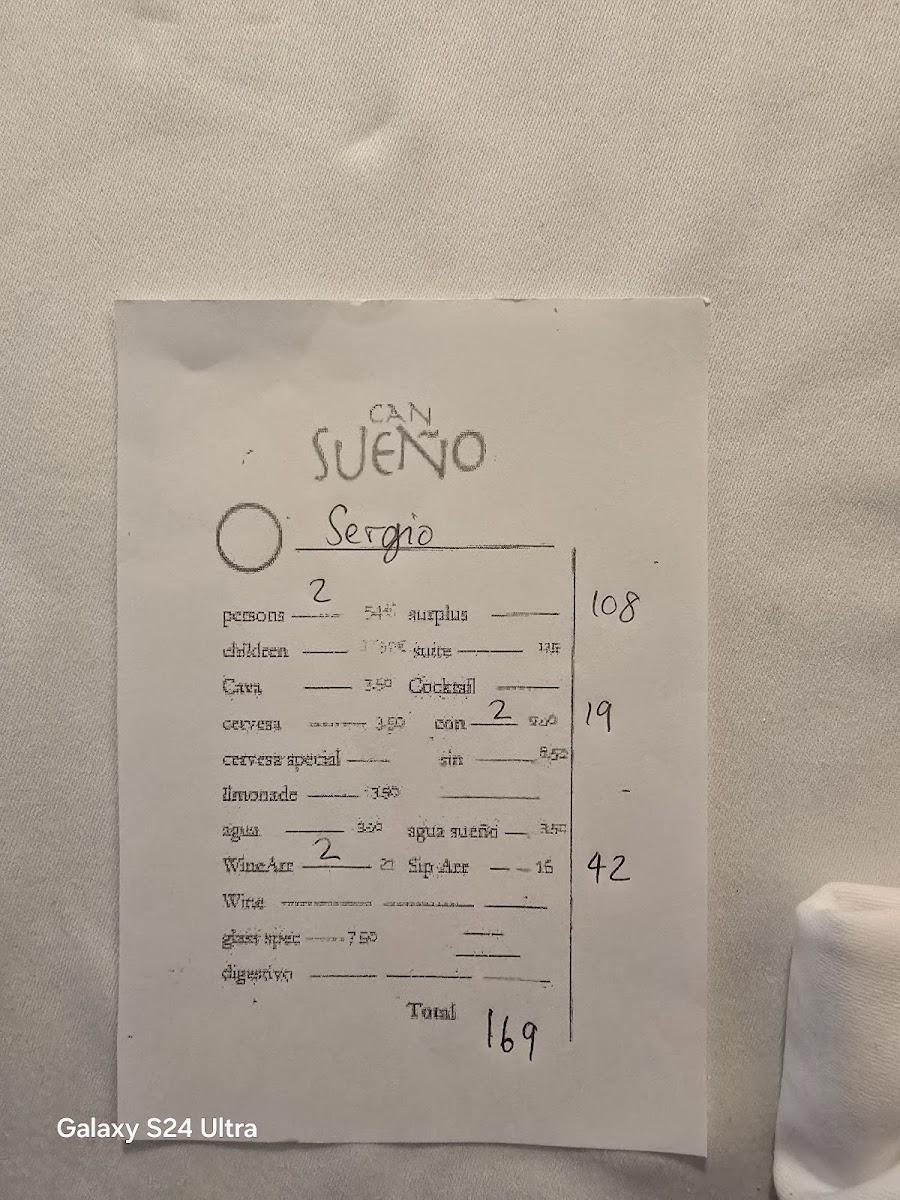 CAN
SUEÑO
Sergio
2
persons 54 surplus 108
children suite
Cava 3.50 Cocktail
cervesa 3.50 con 2 19
cervesa special sin 8.50
limonade 3.50
agua 3.50 agua sueño 3.50
Wine Arr 2 21 Sip Arr 16 42
Wine
glass spec 7.50
digestivo
Total 169
Galaxy S24 Ultra